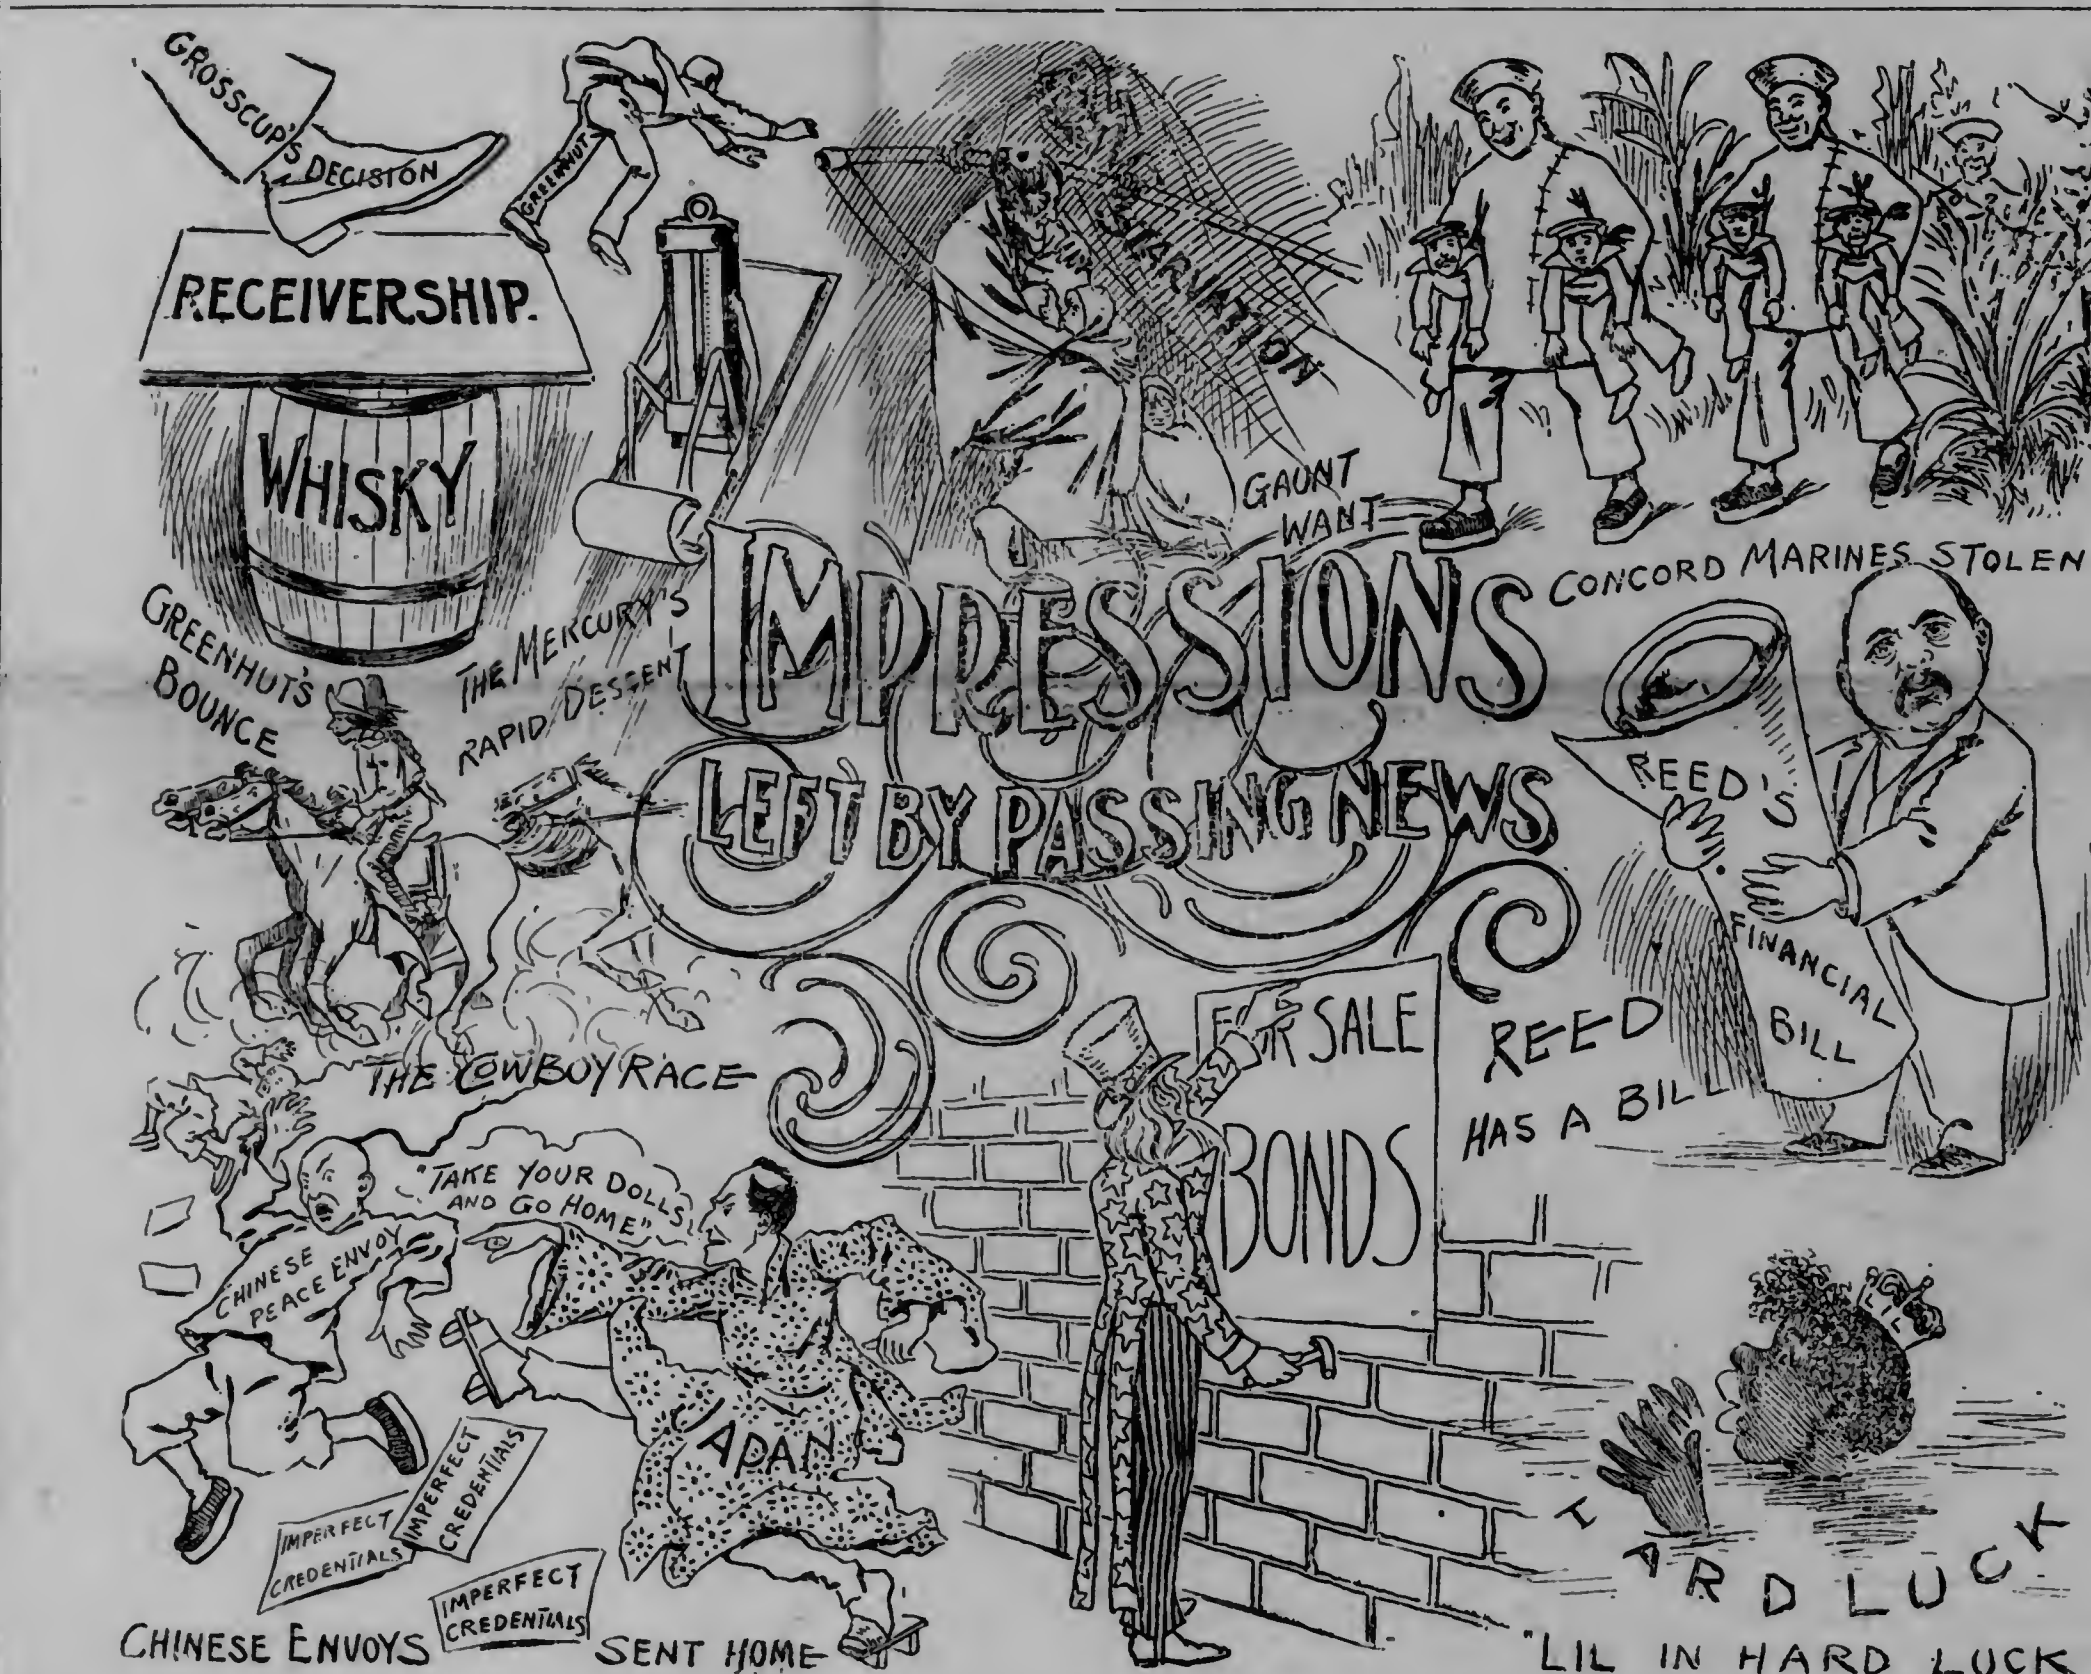 GROSSCUP'S
DECISION
GREENHUT
RECEIVERSHIP.
WHISKY
GREENHUT'S
BOUNCE
THE MERCURY'S
RAPID DESSENT
STARVATION
GAUNT
WANT
CONCORD MARINES STOLEN
IMPRESSIONS
LEFT BY PASSING NEWS
REED'S
FINANCIAL
BILL
REED
HAS A BILL
THE COWBOY RACE
"TAKE YOUR DOLLS
AND GO HOME"
CHINESE
PEACE ENVOY
JAPAN
IMPERFECT
CREDENTIALS
IMPERFECT
CREDENTIALS
IMPERFECT
CREDENTIALS
CHINESE ENVOYS SENT HOME
FOR SALE
BONDS
LIL
HARD LUCK
"LIL IN HARD LUCK